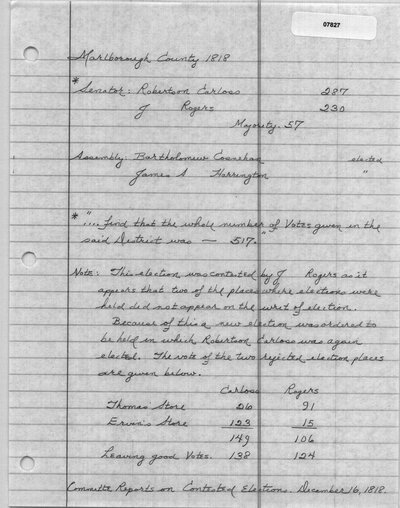 07827
Marlborough County 1818
* Senator: Robertson Carloss 287
J Rogers 230
Majority - 57
Assembly: Bartholomew Cosnahan elected
James S Harrington "
* ".... find that the whole number of Votes given in the
said District was — 517."
Note: This election was contested by J Rogers as it
appears that two of the places where elections were
held did not appear on the writ of election.
Because of this a new election was ordered to
be held in which Robertson Carloss was again
elected. The vote of the two rejected election places
are given below.
Carloss Rogers
Thomas' Store 26 91
Ervin's Store 123 15
149 106
Leaving good Votes. 138 124
Committe Reports on Contested Elections. December 16, 1818.